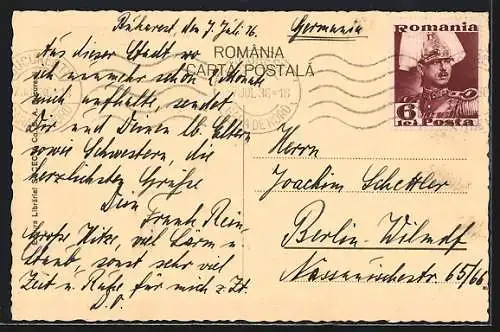 Bukarest, den 7. Juli 36. Germania
ROMÂNIA
CARTA POSTALĂ
Romania
6 lei Posta
Aus dieser Stadt wo
ich nunmehr schon Monate
mich aufhalte, sendet
Dir und Deinen lb. Eltern
sowie Schwestern, die
herzlichsten Grüße
Dein
Frank Rein
große Hitze, viel Lärm u.
Staub sonst sehr viel
Zeit u. Ruhe für mich z. Zt.
D. O.
Herrn
Joachim Schettler
Berlin-Wilmdf
Nassauischestr 65/66.